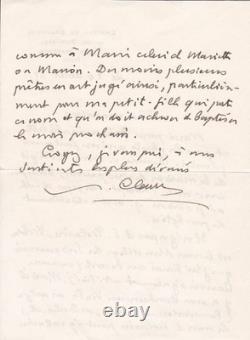 comme à Marie celui de Mariette
ou Marion. Du moins plusieurs
prêtres en ont jugé ainsi, particulière-
ment pour ma petite-fille qui porte
ce nom et qu'on doit achever de baptiser
le mois prochain.
Croyez, je vous prie, à mes
sentiments les plus dévoués
Claudel
ebay